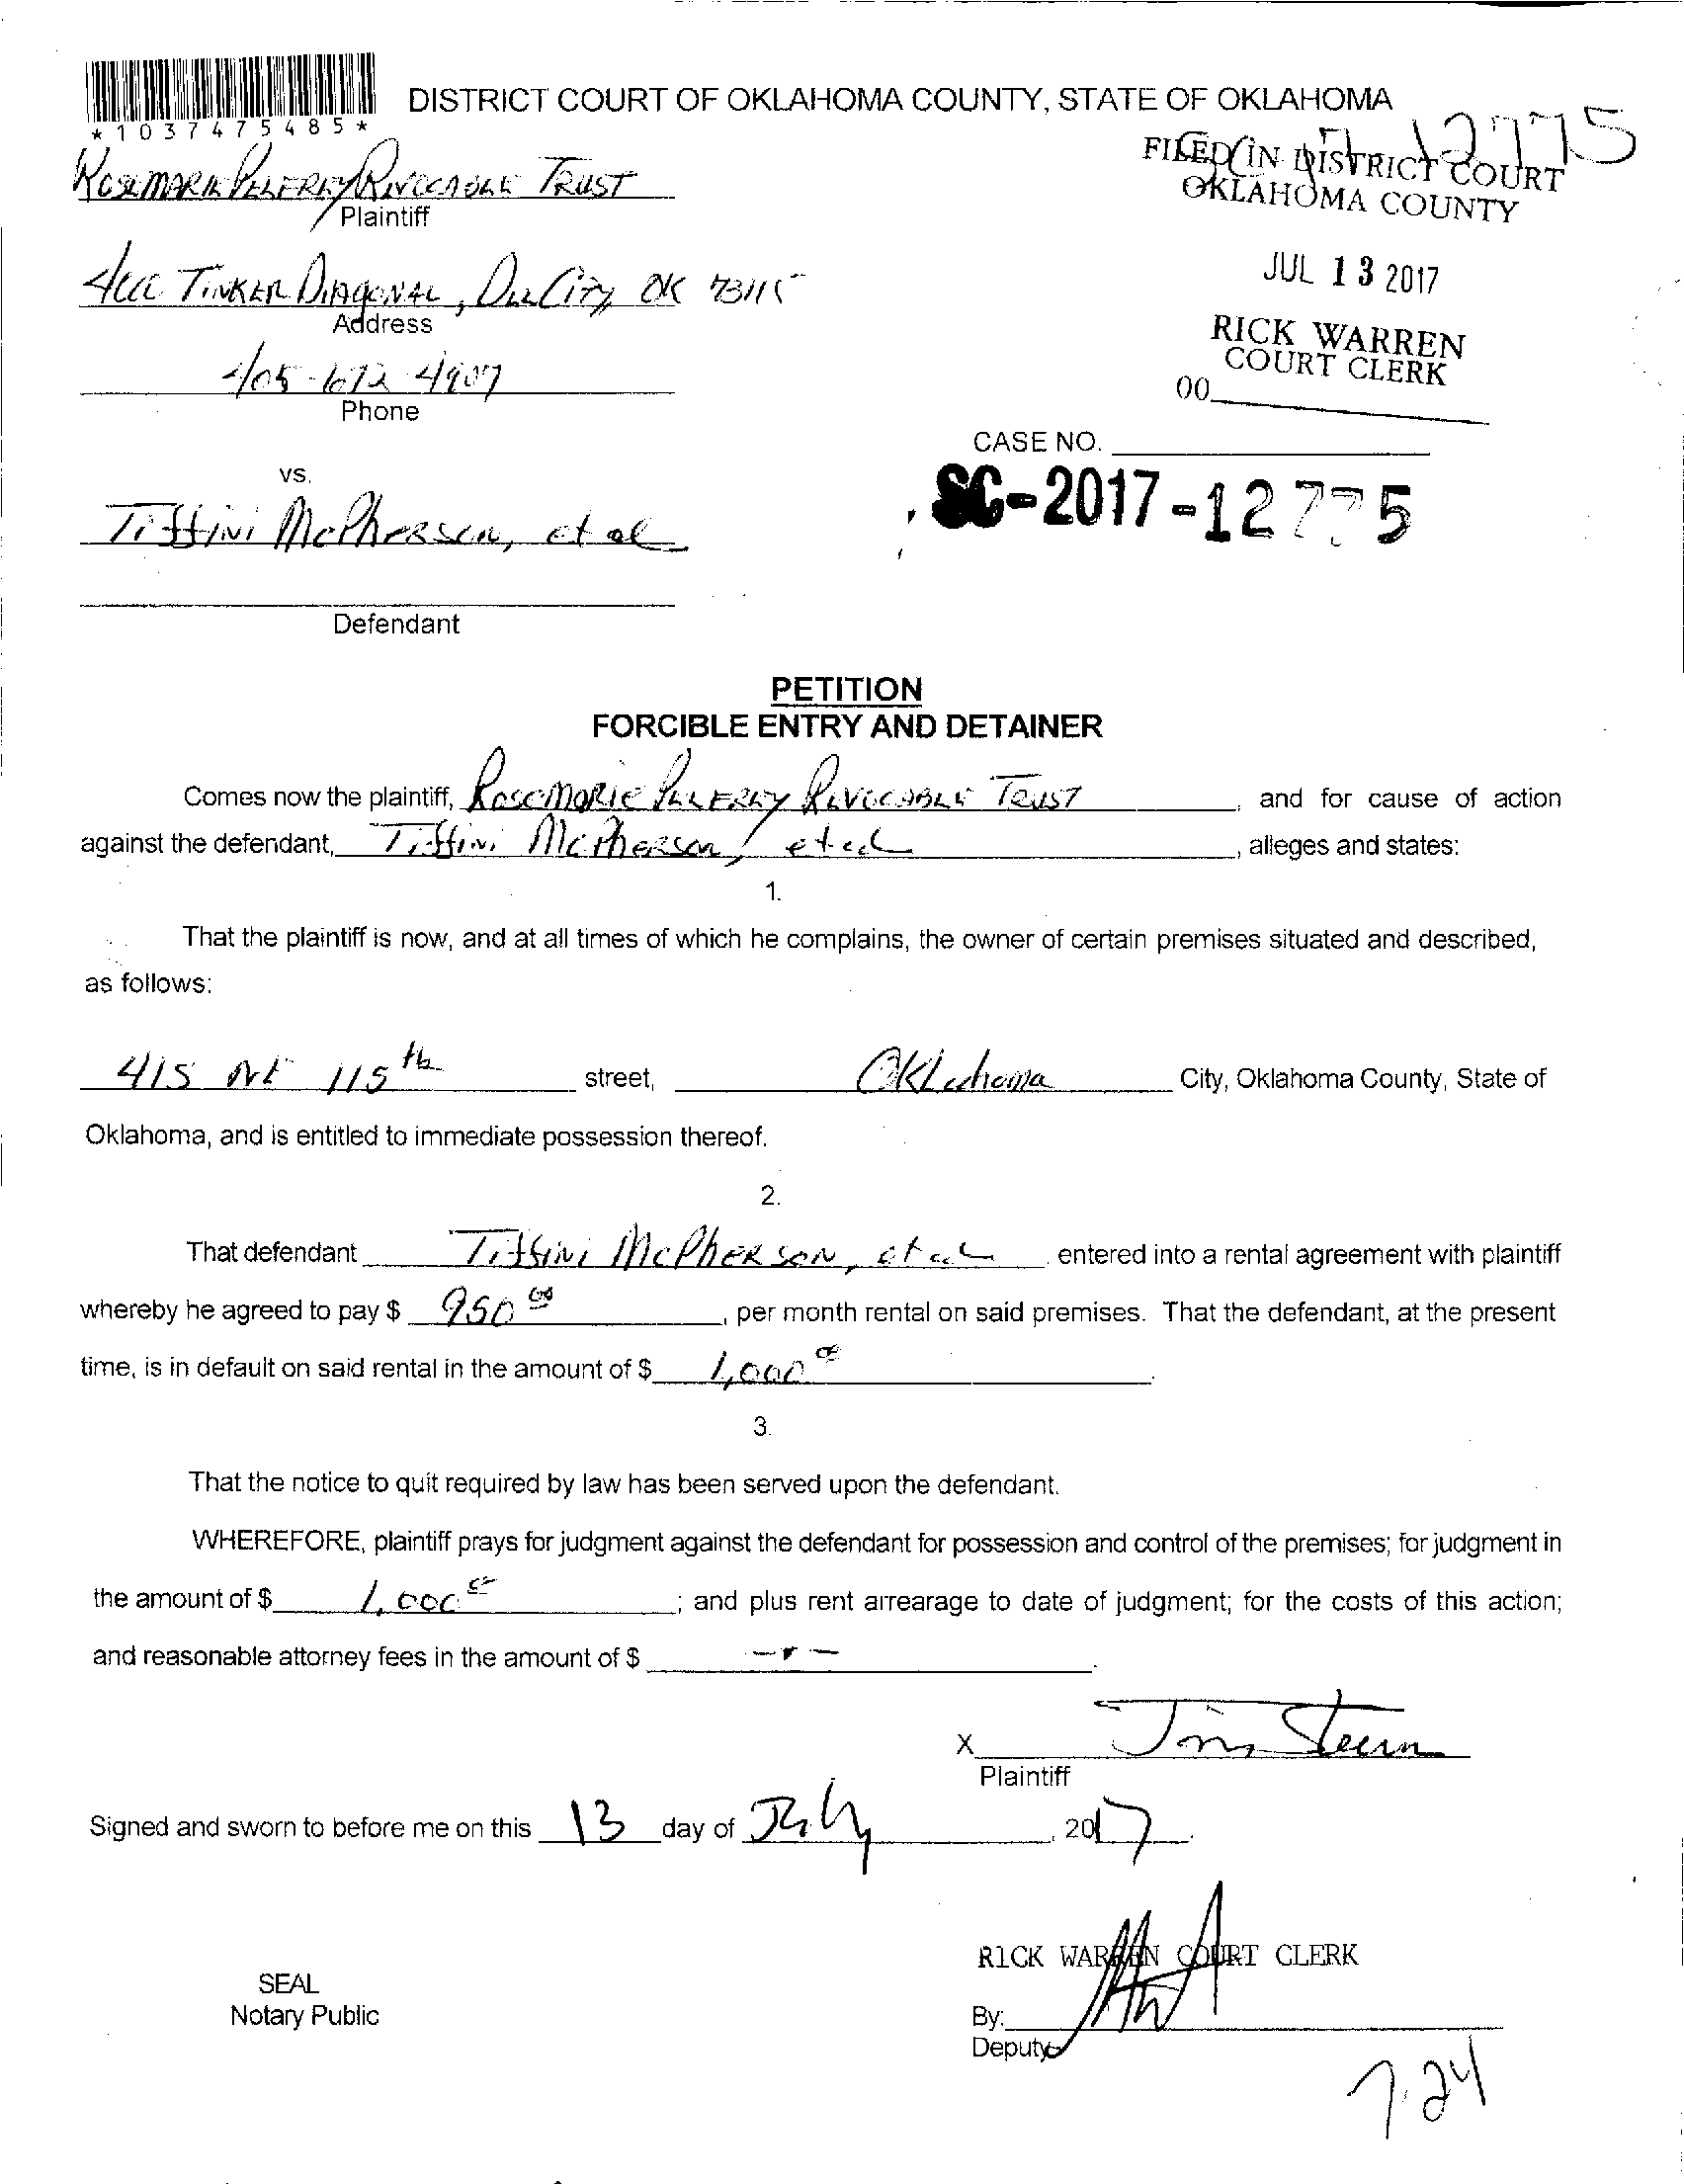 *1037475485*
DISTRICT COURT OF OKLAHOMA COUNTY, STATE OF OKLAHOMA
12775
FILED IN DISTRICT COURT
OKLAHOMA COUNTY
ROSEMARIE REVOCABLE TRUST
Plaintiff
JUL 13 2017
TINKER DIAGONAL, DEL CITY, OK 73115
Address
RICK WARREN
COURT CLERK
405-672-4907
Phone
00
CASE NO.
vs.
SC-2017-12775
Tiffini McPherson, et al
Defendant
PETITION
FORCIBLE ENTRY AND DETAINER
Comes now the plaintiff, ROSEMARIE REVOCABLE TRUST, and for cause of action
against the defendant, Tiffini McPherson, et al, alleges and states:
1.
That the plaintiff is now, and at all times of which he complains, the owner of certain premises situated and described,
as follows:
415 NE 115th street, Oklahoma City, Oklahoma County, State of
Oklahoma, and is entitled to immediate possession thereof.
2.
That defendant Tiffini McPherson, et al entered into a rental agreement with plaintiff
whereby he agreed to pay $ 950 00, per month rental on said premises. That the defendant, at the present
time, is in default on said rental in the amount of $ 1,000 00.
3.
That the notice to quit required by law has been served upon the defendant.
WHEREFORE, plaintiff prays for judgment against the defendant for possession and control of the premises; for judgment in
the amount of $ 1,000 00; and plus rent arrearage to date of judgment; for the costs of this action;
and reasonable attorney fees in the amount of $ ---.
X
Plaintiff
Signed and sworn to before me on this 13 day of July, 2017.
RICK WARREN COURT CLERK
SEAL
Notary Public
By:
Deputy
7.24